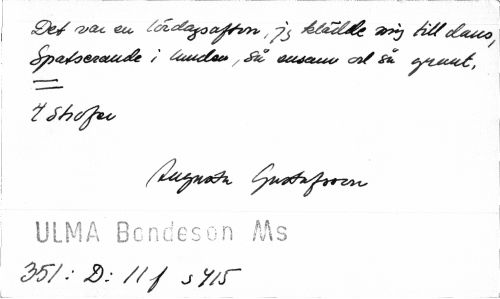 Det var en lördagsafton, jg klädde mig till dans,
Spatserande i lunden, så ensam och så grant.
4 strofer
Augusta Gustafsson
ULMA Bondeson Ms
351: D: 11f s 415